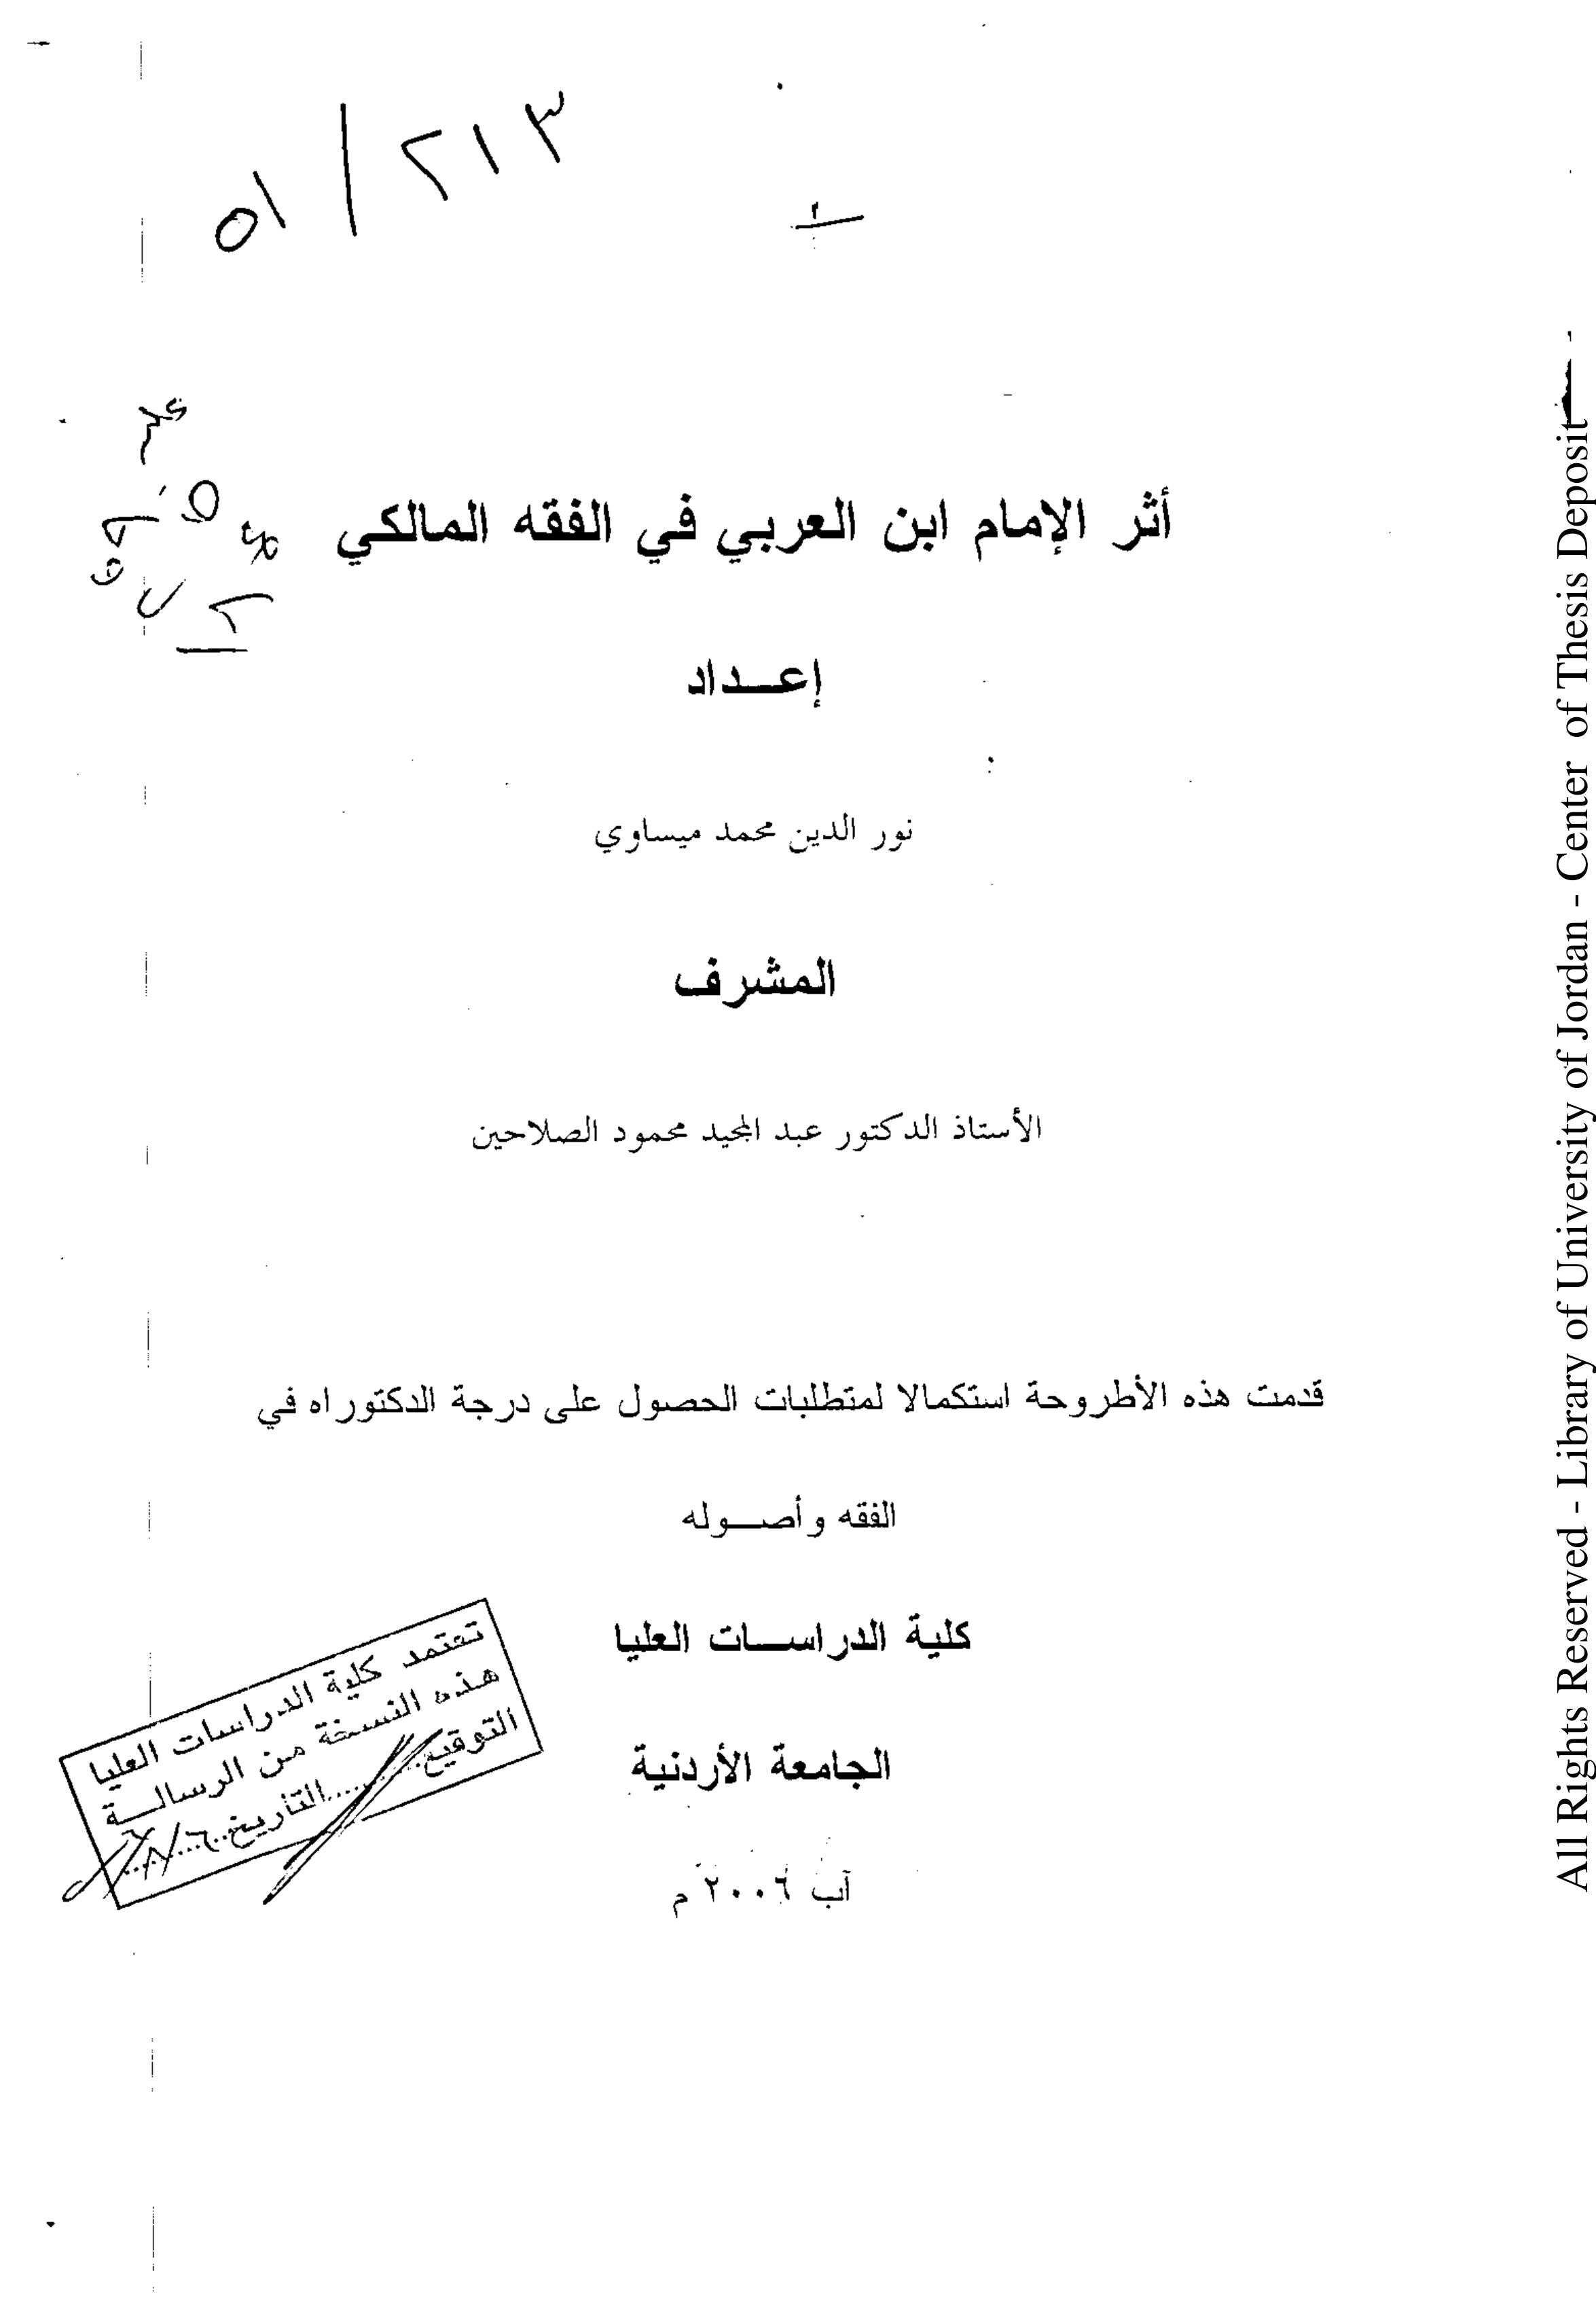 ٥١/٢١٣
أثر الإمام ابن العربي في الفقه المالكي
إعـــداد
نور الدين محمد ميساوي
المشرف
الأستاذ الدكتور عبد المجيد محمود الصلاحين
قدمت هذه الأطروحة استكمالا لمتطلبات الحصول على درجة الدكتوراه في
الفقه وأصـــوله
كلية الدراســـات العليا
الجامعة الأردنية
آب ٢٠٠٦ م
تعتمد كلية الدراسات العليا
هذه النسخة من الرسالـــة
التوقيع............التاريخ
All Rights Reserved - Library of University of Jordan - Center of Thesis Deposit